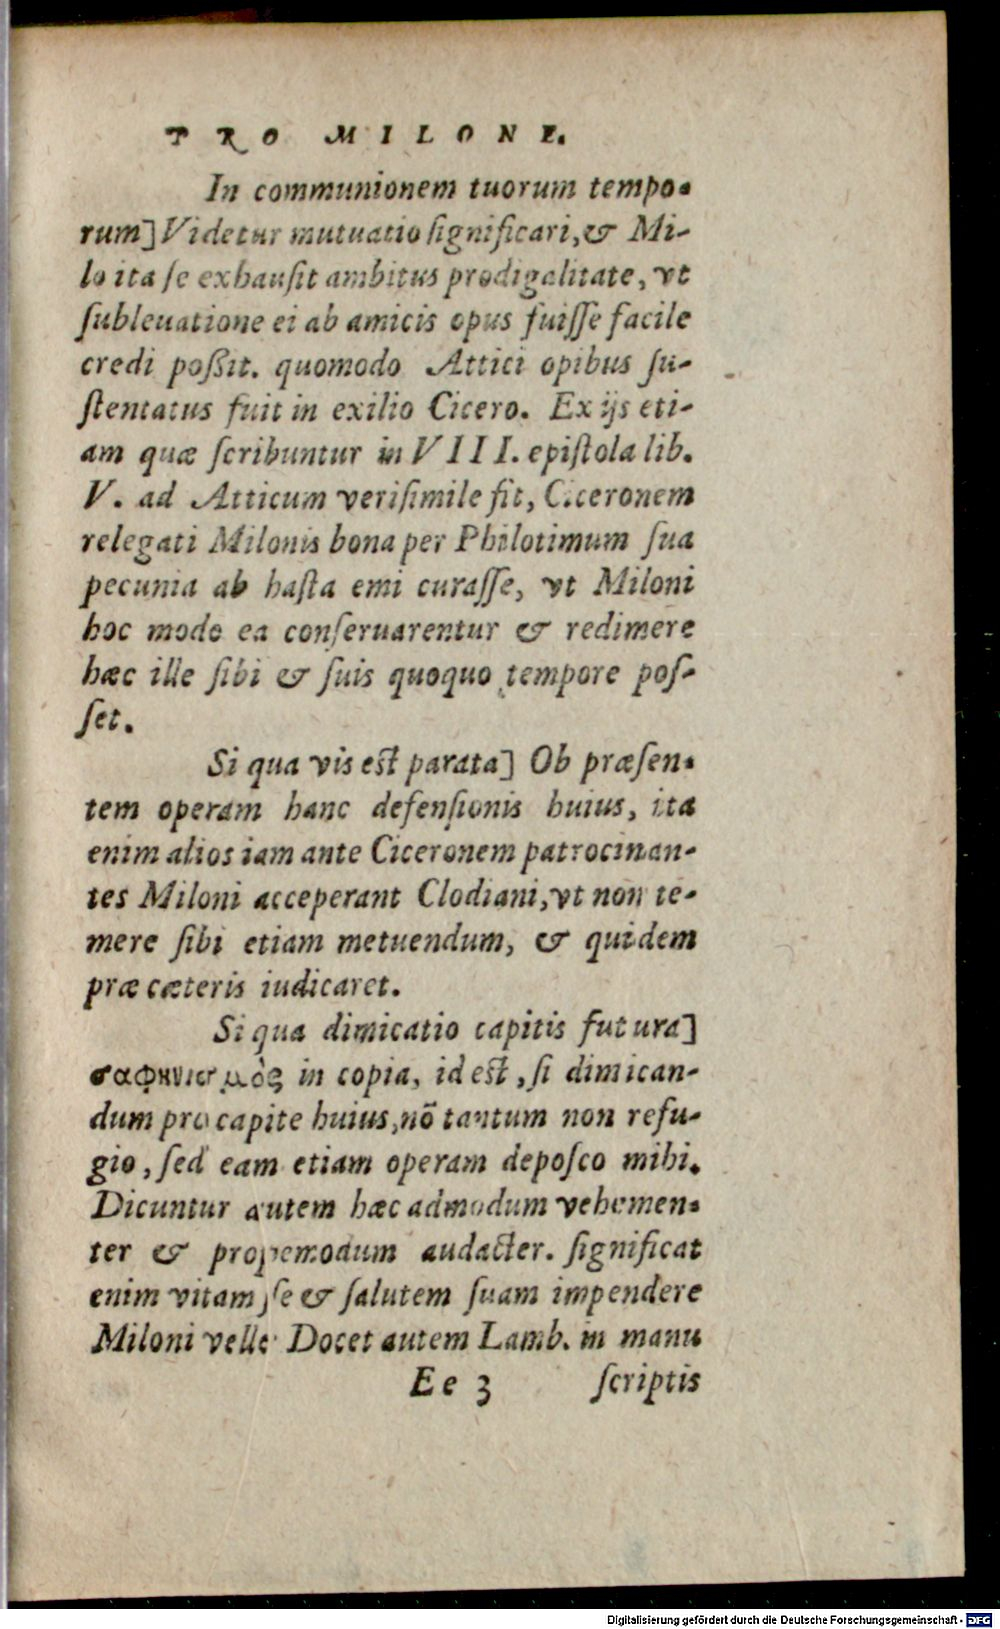 PRO MILONE.
In communionem tuorum tempo-
rum] Videtur mutuatio ſignificari, & Mi-
lo ita ſe exhauſit ambitus prodigalitate, vt
ſubleuatione ei ab amicis opus fuiſſe facile
credi poßit. quomodo Attici opibus ſu-
ſtentatus fuit in exilio Cicero. Ex ijs eti-
am quæ ſcribuntur in VIII. epiſtola lib.
V. ad Atticum veriſimile fit, Ciceronem
relegati Milonis bona per Philotimum ſua
pecunia ab haſta emi curaſſe, vt Miloni
hoc modo ea conſeruarentur & redimere
hæc ille ſibi & ſuis quoquo tempore poſ-
ſet.
Si qua vis est parata] Ob præſen-
tem operam hanc defenſionis huius, ita
enim alios iam ante Ciceronem patrocinan-
tes Miloni acceperant Clodiani, vt non te-
mere ſibi etiam metuendum, & quidem
præ cæteris iudicaret.
Si qua dimicatio capitis futura]
σαφηνισμὸς in copia, id est, ſi dimican-
dum pro capite huius, nō tantum non refu-
gio, ſed eam etiam operam depoſco mihi.
Dicuntur autem hæc admodum vehemen-
ter & propemodum audacter. ſignificat
enim vitam ſe & ſalutem ſuam impendere
Miloni velle. Docet autem Lamb. in manu
Ee 3 ſcriptis
Digitalisierung gefördert durch die Deutsche Forschungsgemeinschaft - DFG